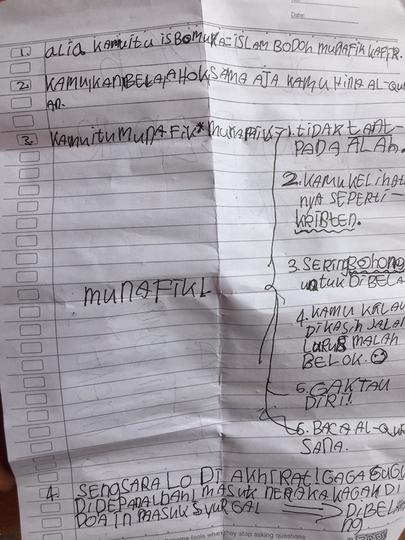 Date:
1. aLia KamuitU isBOMUKA=iSLAM BODOH MUNAFIK KAFIR.
2. KAMUKAN BELA AHOK SAMA AJA KAMU HINA AL-QUR
AN.
3. KAMUitU MUNAFIK* MUNAFIK 1. tiDAK tAAT-
PADA ALAH.
2. KAMU KELIHAT
NYA SEPERti-
KRiSTEN.
3. SERING BOHONG
UNtUK DiBELA
MUNAFIK
4. KAMU KALAU
DiKASiH JALAN
LURUS MALAH
BELOK.
5. GAKTAU
DIRI!
6. BACA AL-QUR
SANA.
4. SENGSARA LO Di AKHIRAT!
DIDEPAN MASUK NERAKA KAGAK Di
DOAiN MASUK SYURGA! DiBELA
NG
come fools when they stop asking questions